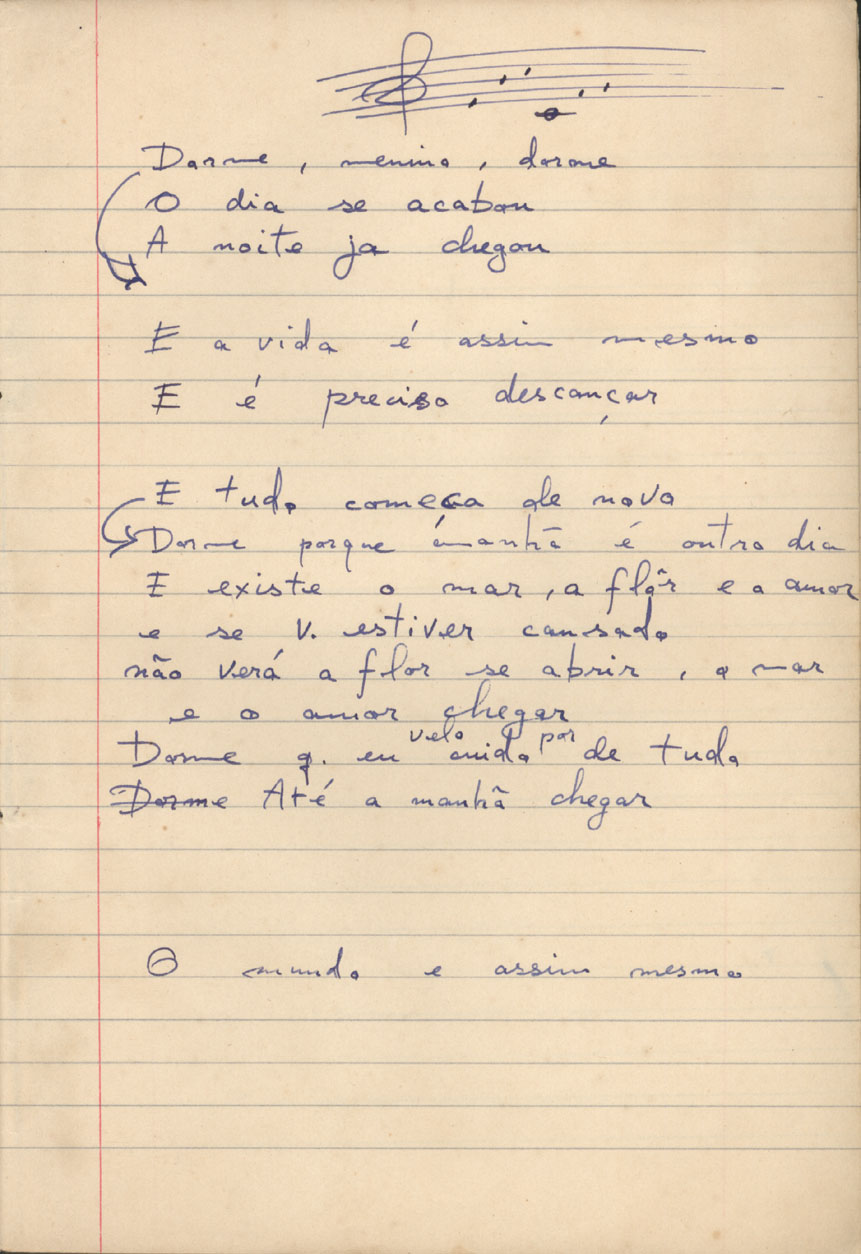 Dorme, menino, dorme
O dia se acabou
A noite ja chegou
E a vida é assim mesmo
E é preciso descançar
E tudo começa de novo
Dorme porque ámanhã é outro dia
E existe o mar, a flôr e o amor
e se v. estiver cansado
não verá a flor se abrir, o mar
e o amor chegar
velo por
Dorme q. eu cuido de tudo
Dorme Até a manhã chegar
O mundo e assim mesmo